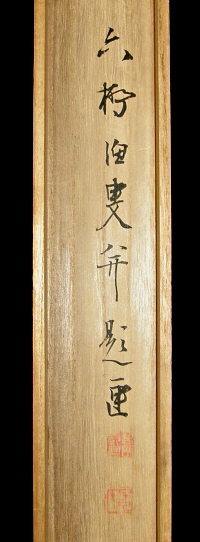 六柳漁叟并題匣